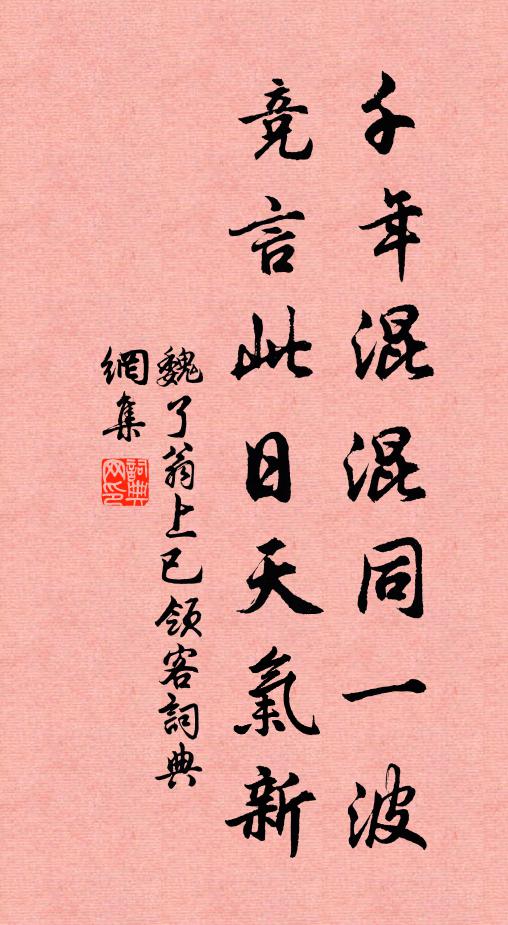 千年混混同一波
竞言此日天氣新
魏了翁上巳領客詞典
網集
詞典网印